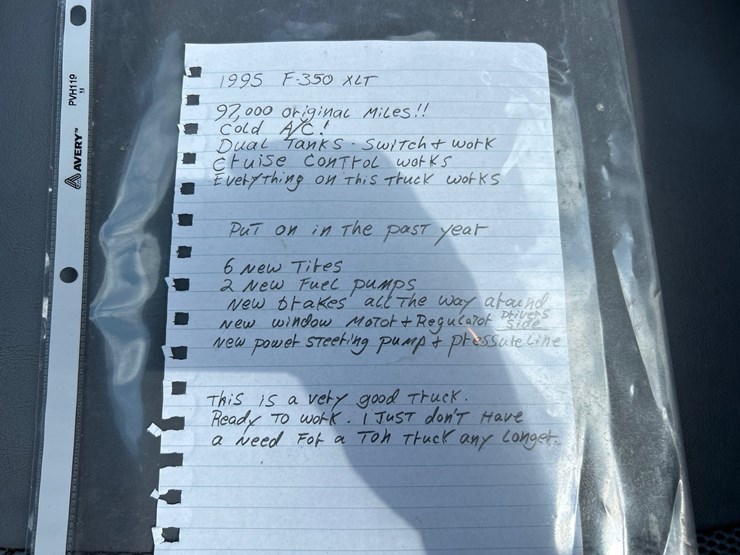 1995 F-350 XLT
97,000 original Miles!!
Cold A/C!
Dual Tanks - Switch + work
Cruise Control works
Everything on This Truck works
Put on in The past year
6 New Tires
2 New Fuel pumps
New brakes all The way around
New window Motor + Regulator Drivers Side
New power steering pump + pressure line
This is a very good Truck.
Ready To work. I Just don't Have
a Need For a Ton Truck any Longer.
AVERY™
PVH119